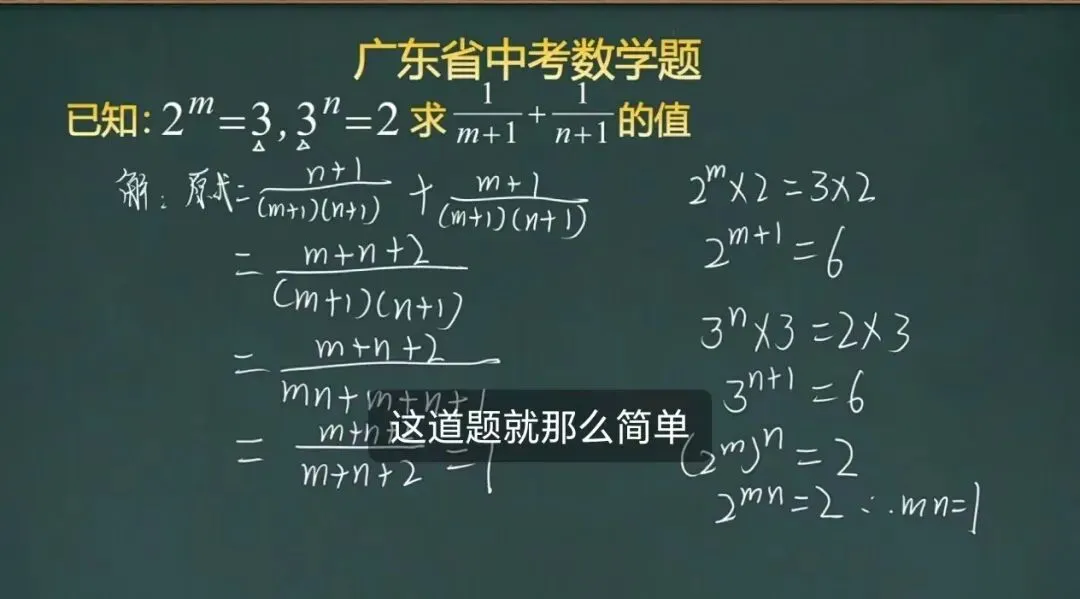 广东省中考数学题
已知: 2^m=3, 3^n=2 求 1/(m+1) + 1/(n+1) 的值
解: 原式= (n+1)/((m+1)(n+1)) + (m+1)/((m+1)(n+1))
= (m+n+2)/((m+1)(n+1))
= (m+n+2)/(mn+m+n+1)
= (m+n+2)/(m+n+2) = 1
2^m×2=3×2
2^(m+1)=6
3^n×3=2×3
3^(n+1)=6
(2^m)^n=2
2^(mn)=2 ∴mn=1
这道题就那么简单